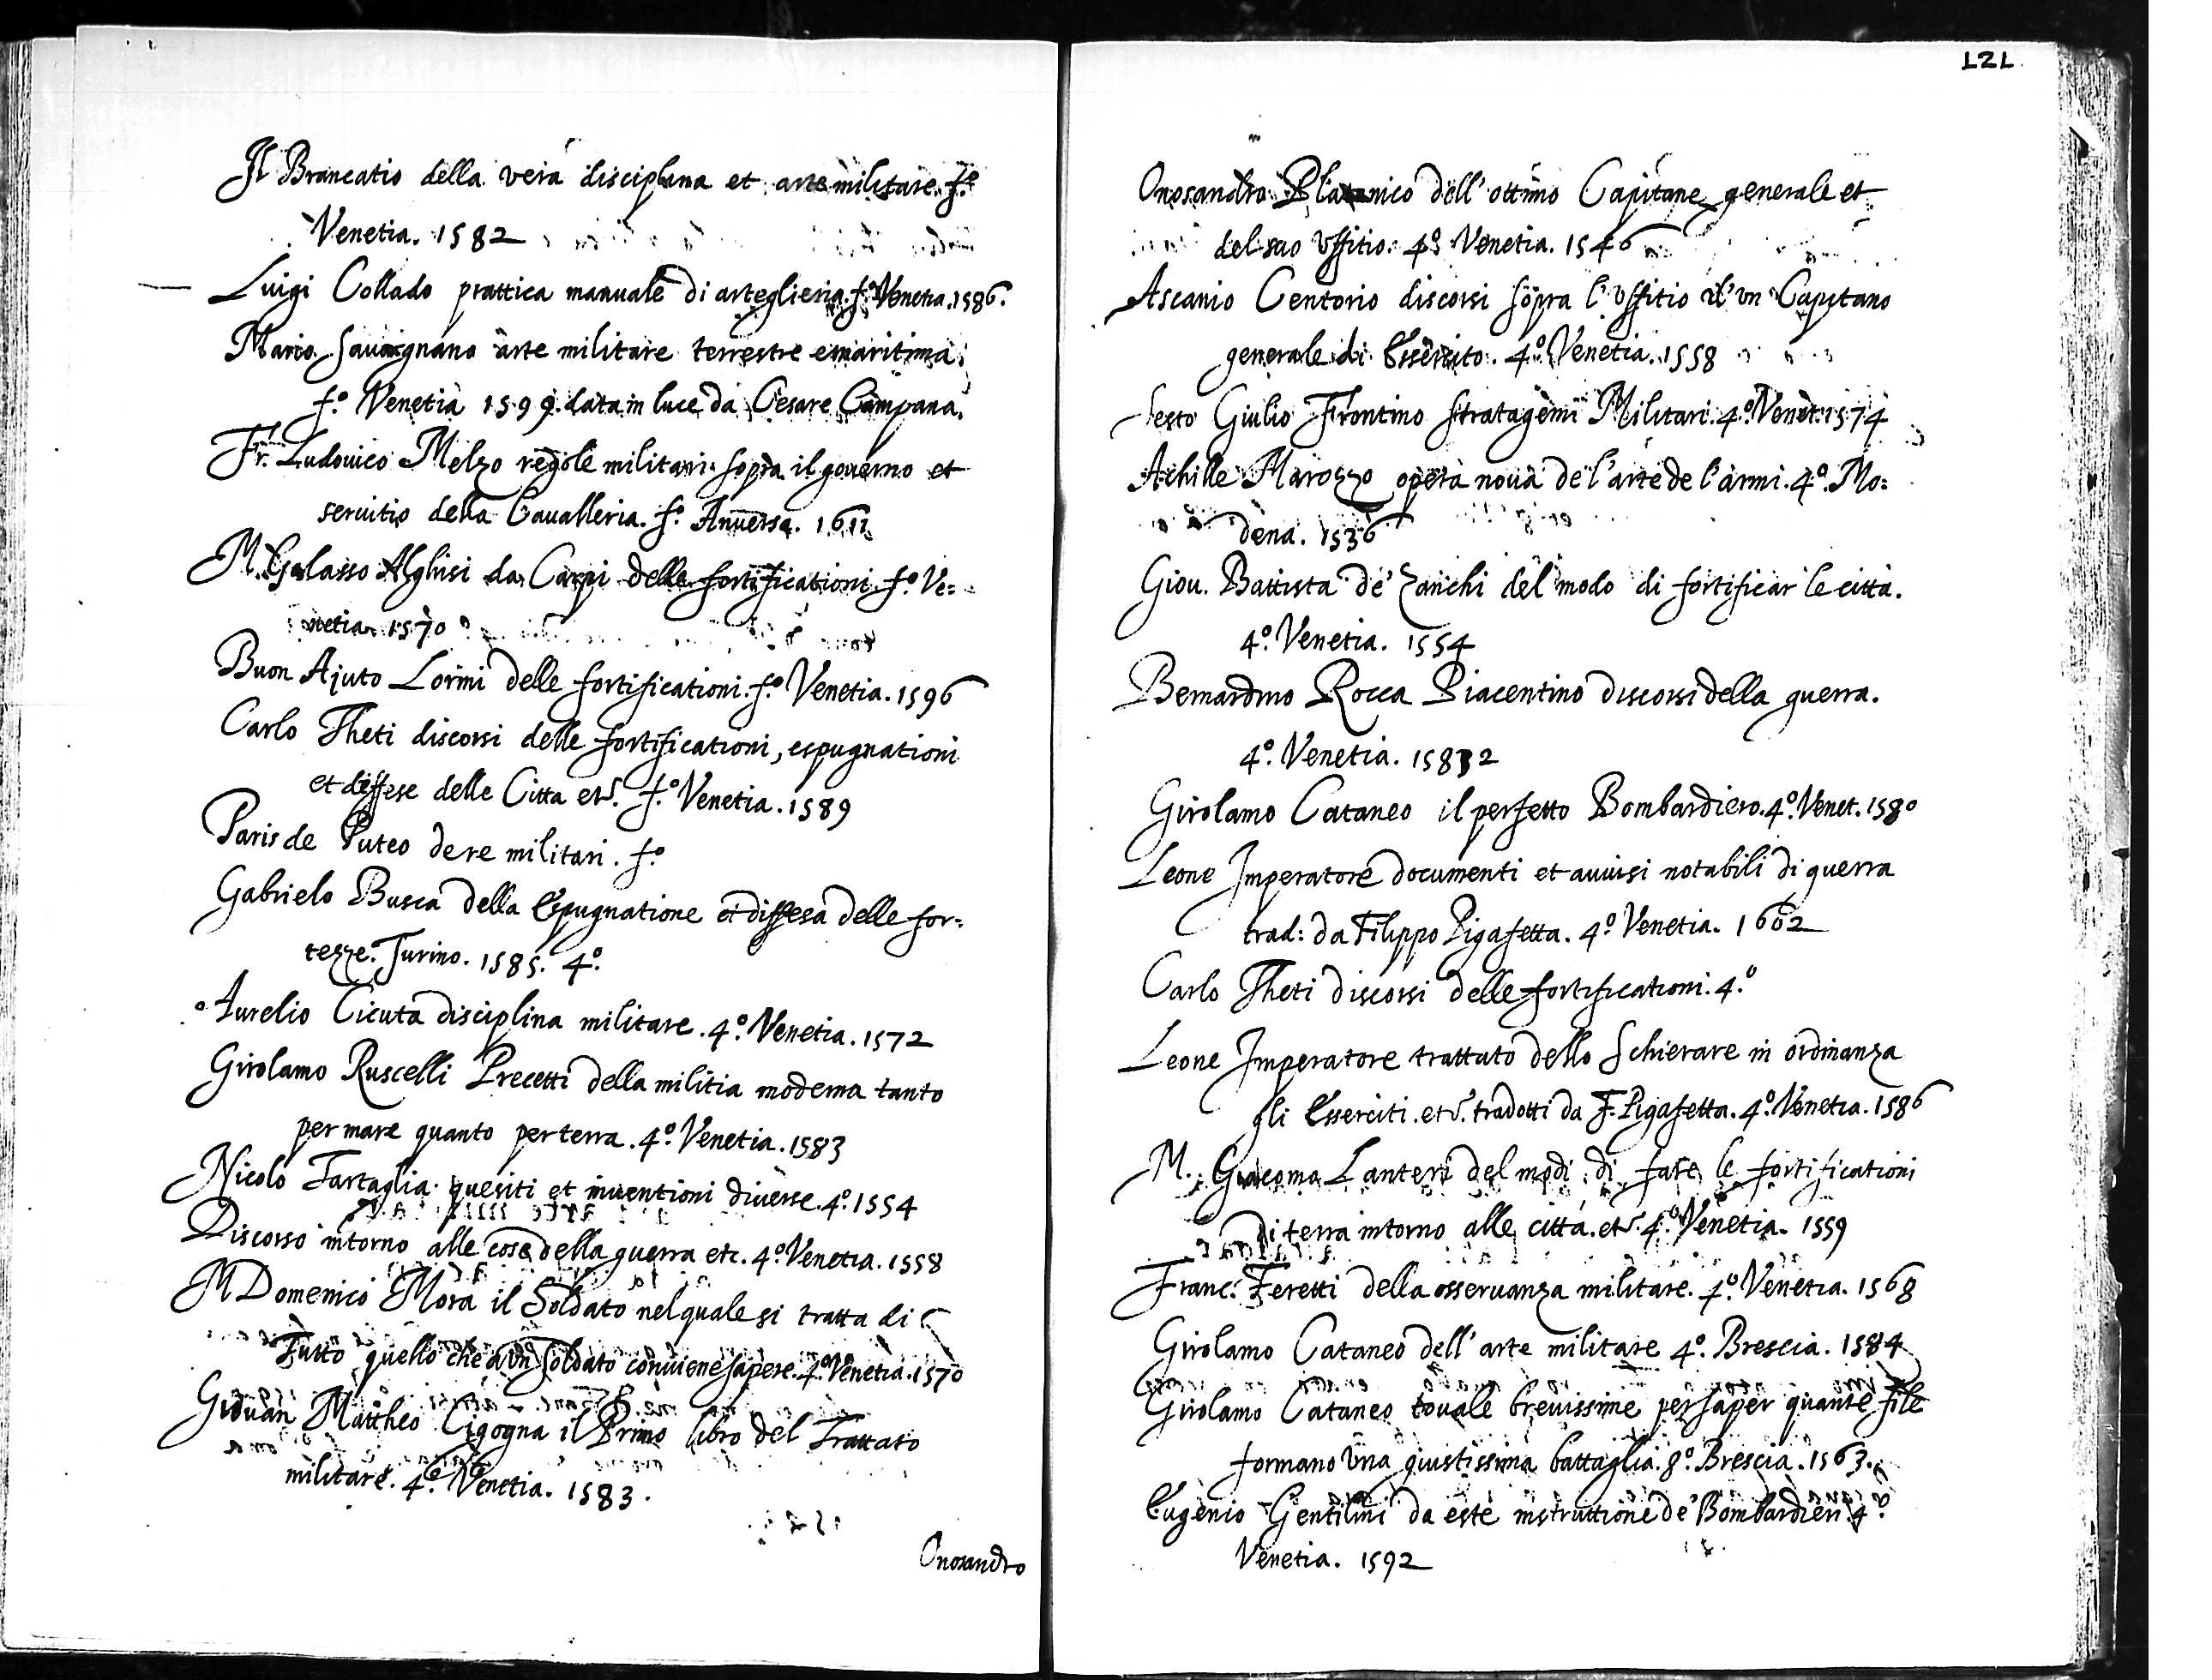 Il Brancatio della vera disciplina et arte militare. f.o
Venetia. 1582
Luigi Collado prattica manuale di arteglieria. f.o Venetia. 1586.
Mario Sauorgnano arte militare terrestre e maritima.
f.o Venetia 1599. data in luce da Cesare Campana.
Fr. Ludouico Melzo regole militari sopra il gouerno et
seruitio della Caualleria. f.o Anuersa. 1611
M. Galasso Alghisi da Carpi delle fortificationi. f.o Ve=
netia 1570
Buon Ajuto Lorini delle fortificationi. f.o Venetia. 1596
Carlo Theti discorsi delle fortificationi, espugnationi
et deffese delle Citta etc. f.o Venetia. 1589
Paris de Puteo de re militari. f.o
Gabrielo Busca della Espugnatione et diffesa delle for=
tezze. Turino. 1585. 4.o
Aurelio Cicuta disciplina militare. 4.o Venetia. 1572
Girolamo Ruscelli Precetti della militia moderna tanto
per mare quanto per terra. 4.o Venetia. 1583
Nicolo Tartaglia quesiti et inuentioni diuerse. 4.o 1554
Discorso intorno alle cose della guerra etc. 4.o Venetia. 1558
M Domenico Mora il Soldato nel quale si tratta di
Tutto quello che à un soldato conuiene sapere. 4.o Venetia. 1570
Giouan Mattheo Cigogna il Primo libro del Trattato
militare. 4.o Venetia. 1583.
Onosandro
121
Onosandro Platonico dell' ottimo Capitane generale et
del suo Vffitio. 4.o Venetia. 1546
Ascanio Centorio discorsi sopra l' Vffitio d' vn Capitano
generale di Essercito. 4.o Venetia. 1558
Sesto Giulio Frontino Stratagemi Militari. 4.o Venet. 1574
Achille Marozzo opera noua de l' arte de l' armi. 4.o Mo=
dena. 1536
Giou. Battista de' Zanchi del modo di fortificar le città.
4.o Venetia. 1554
Bernardino Rocca Piacentino discorsi della guerra.
4.o Venetia. 1582
Girolamo Cataneo il perfetto Bombardiero. 4.o Venet. 1580
Leone Imperatore documenti et auuisi notabili di guerra
trad: da Filippo Pigafetta. 4.o Venetia. 1602
Carlo Theti discorsi delle fortificationi. 4.o
Leone Imperatore trattato dello Schierare in ordinanza
gli Esserciti. etc. tradotti da F. Pigafetta. 4.o Venetia. 1586
M. Giacomo Lanteri del modi di fare le fortificationi
di terra intorno alle città. etc. 4.o Venetia. 1559
Franc. Feretti della osseruanza militare. 4.o Venetia. 1568
Girolamo Cataneo dell' arte militare 4.o Brescia. 1584
Girolamo Cataneo touale breuissime per saper quante file
formano una giustissima battaglia. 8.o Brescia. 1563.
Eugenio Gentilini da este instruttione de' Bombardieri. 4.o
Venetia. 1592